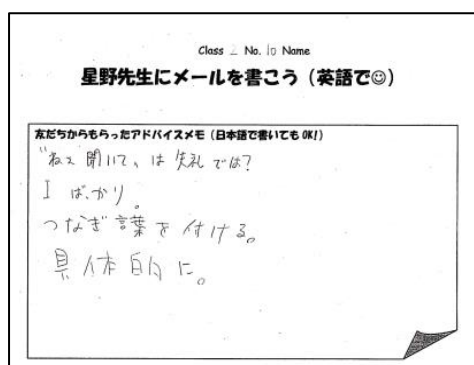 Class 2 No. 10 Name
星野先生にメールを書こう（英語で☺）
友だちからもらったアドバイスメモ（日本語で書いてもOK!）
"ねぇ聞いて、は失礼では?
I ばっかり。
つなぎ言葉を付ける。
具体的に。